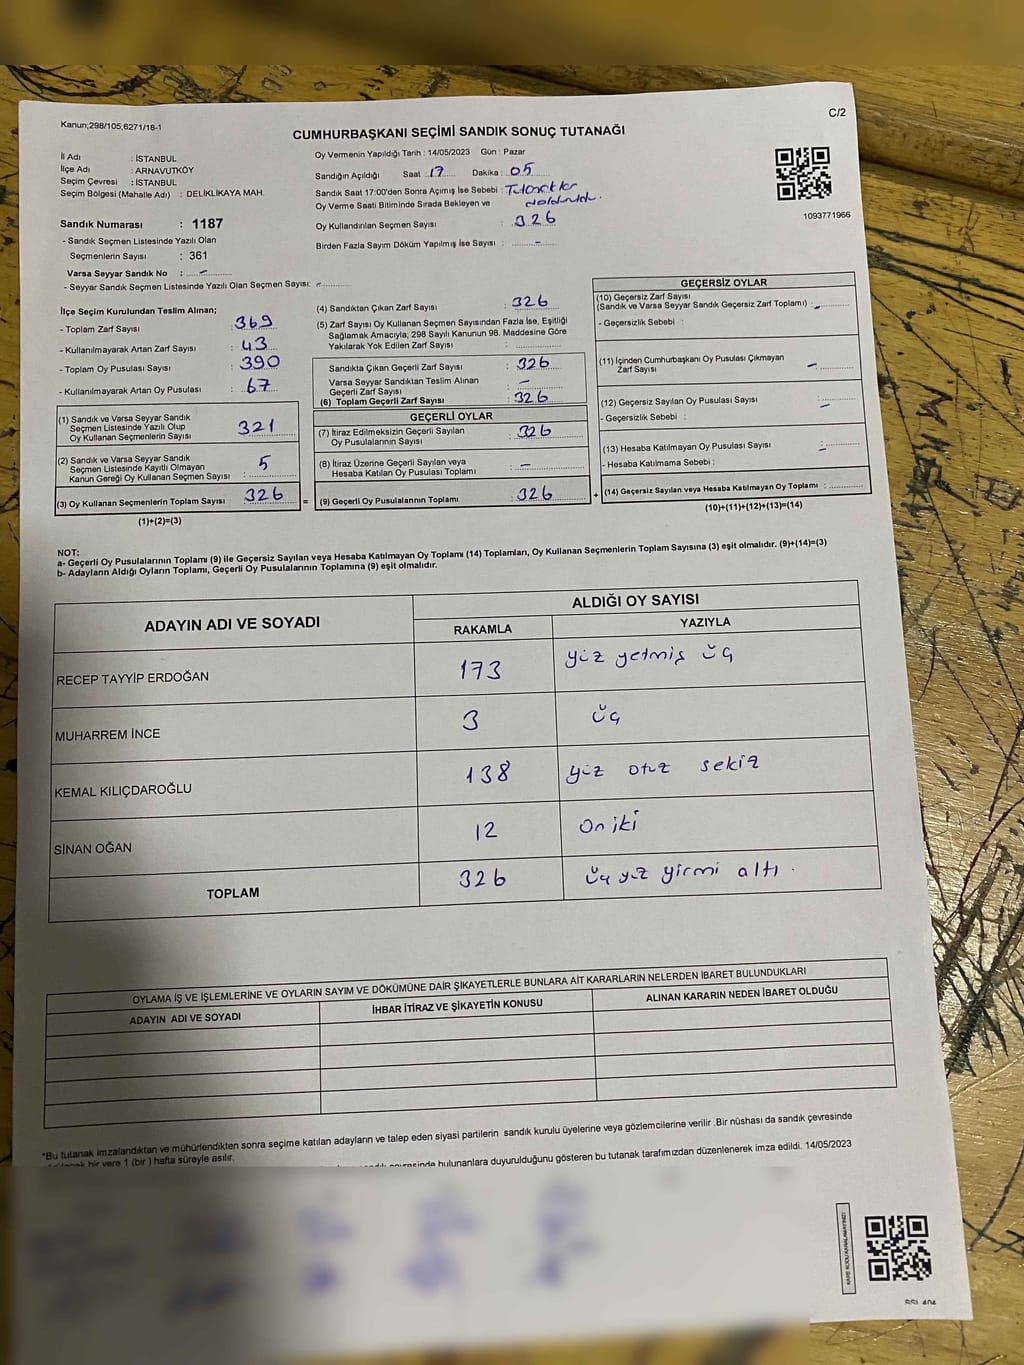 C/2
Kanun;298/105,6271/18-1
CUMHURBAŞKANI SEÇİMİ SANDIK SONUÇ TUTANAĞI
İl Adı : İSTANBUL
İlçe Adı : ARNAVUTKÖY
Seçim Çevresi : İSTANBUL
Seçim Bölgesi (Mahalle Adı) : DELİKLİKAYA MAH.
Sandık Numarası : 1187
- Sandık Seçmen Listesinde Yazılı Olan
Seçmenlerin Sayısı : 361
Varsa Seyyar Sandık No : -
- Seyyar Sandık Seçmen Listesinde Yazılı Olan Seçmen Sayısı: -
Oy Vermenin Yapıldığı Tarih : 14/05/2023 Gün : Pazar
Sandığın Açıldığı Saat : 17 Dakika : 05
Sandık Saat 17:00'den Sonra Açımış İse Sebebi : Tutanaklar
Oy Verme Saati Bitiminde Sırada Bekleyen ve dolduruldu.
Oy Kullandırılan Seçmen Sayısı : 326
Birden Fazla Sayım Döküm Yapılmış İse Sayısı : -
1093771966
İlçe Seçim Kurulundan Teslim Alınan;
- Toplam Zarf Sayısı : 369
- Kullanılmayarak Artan Zarf Sayısı : 43
- Toplam Oy Pusulası Sayısı : 390
- Kullanılmayarak Artan Oy Pusulası : 67
(1) Sandık ve Varsa Seyyar Sandık
Seçmen Listesinde Yazılı Olup
Oy Kullanan Seçmenlerin Sayısı 321
(2) Sandık ve Varsa Seyyar Sandık
Seçmen Listesinde Kayıtlı Olmayan
Kanun Gereği Oy Kullanan Seçmen Sayısı : 5
(3) Oy Kullanan Seçmenlerin Toplam Sayısı : 326 =
(1)+(2)=(3)
(4) Sandıktan Çıkan Zarf Sayısı : 326
(5) Zarf Sayısı Oy Kullanan Seçmen Sayısından Fazla İse, Eşitliği
Sağlamak Amacıyla; 298 Sayılı Kanunun 98. Maddesine Göre
Yakılarak Yok Edilen Zarf Sayısı :
Sandıkta Çıkan Geçerli Zarf Sayısı : 326
Varsa Seyyar Sandıktan Teslim Alınan
Geçerli Zarf Sayısı : -
(6) Toplam Geçerli Zarf Sayısı : 326
GEÇERLİ OYLAR
(7) İtiraz Edilmeksizin Geçerli Sayılan
Oy Pusulalarının Sayısı : 326
(8) İtiraz Üzerine Geçerli Sayılan veya
Hesaba Katılan Oy Pusulası Toplamı : -
(9) Geçerli Oy Pusulalarının Toplamı : 326 +
GEÇERSİZ OYLAR
(10) Geçersiz Zarf Sayısı
(Sandık ve Varsa Seyyar Sandık Geçersiz Zarf Toplamı) : -
- Geçersizlik Sebebi :
(11) İçinden Cumhurbaşkanı Oy Pusulası Çıkmayan
Zarf Sayısı : -
(12) Geçersiz Sayılan Oy Pusulası Sayısı : -
- Geçersizlik Sebebi :
(13) Hesaba Katılmayan Oy Pusulası Sayısı : -
- Hesaba Katılmama Sebebi :
(14) Geçersiz Sayılan veya Hesaba Katılmayan Oy Toplamı :
(10)+(11)+(12)+(13)=(14)
NOT:
a- Geçerli Oy Pusulalarının Toplamı (9) ile Geçersiz Sayılan veya Hesaba Katılmayan Oy Toplamı (14) Toplamları, Oy Kullanan Seçmenlerin Toplam Sayısına (3) eşit olmalıdır. (9)+(14)=(3)
b- Adayların Aldığı Oyların Toplamı, Geçerli Oy Pusulalarının Toplamına (9) eşit olmalıdır.
ADAYIN ADI VE SOYADI
ALDIĞI OY SAYISI
RAKAMLA YAZIYLA
RECEP TAYYİP ERDOĞAN 173 yüz yetmiş üç
MUHARREM İNCE 3 üç
KEMAL KILIÇDAROĞLU 138 yüz otuz sekiz
SİNAN OĞAN 12 on iki
TOPLAM 326 üç yüz yirmi altı.
OYLAMA İŞ VE İŞLEMLERİNE VE OYLARIN SAYIM VE DÖKÜMÜNE DAİR ŞİKAYETLERLE BUNLARA AİT KARARLARIN NELERDEN İBARET BULUNDUKLARI
ADAYIN ADI VE SOYADI İHBAR İTİRAZ VE ŞİKAYETİN KONUSU ALINAN KARARIN NEDEN İBARET OLDUĞU
*Bu tutanak imzalandıktan ve mühürlendikten sonra seçime katılan adayların ve talep eden siyasi partilerin sandık kurulu üyelerine veya gözlemcilerine verilir .Bir nüshası da sandık çevresinde
bir yere 1 (bir ) hafta süreyle asılır.
bulunanlara duyurulduğunu gösteren bu tutanak tarafımızdan düzenlenerek imza edildi. 14/05/2023